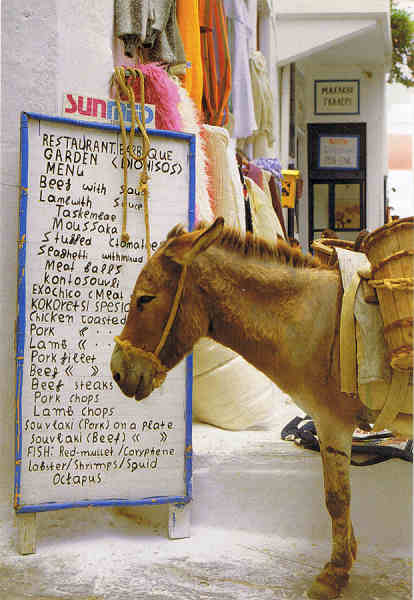 SUNMED
RESTAURANT. BARBEQUE
GARDEN (DIONISOS)
MENU
Beef with sauce
Lamb with sauce
Taskebab
Moussaka
Stuffed tomatoes
Spaghetti with mixed
Meat balls
kontosouvli
EXOCHICO (Meat
KOKORETSI SPECIA
Chicken toasted
Pork "
Lamb "
Pork fillet
Beef " "
Beef steaks
Pork chops
Lamb chops
Souvlaki (Pork) on a plate
Souvlaki (Beef) " "
FISH: Red-mullet/Coryptene
Lobster/Shrimps/Squid
Octapus